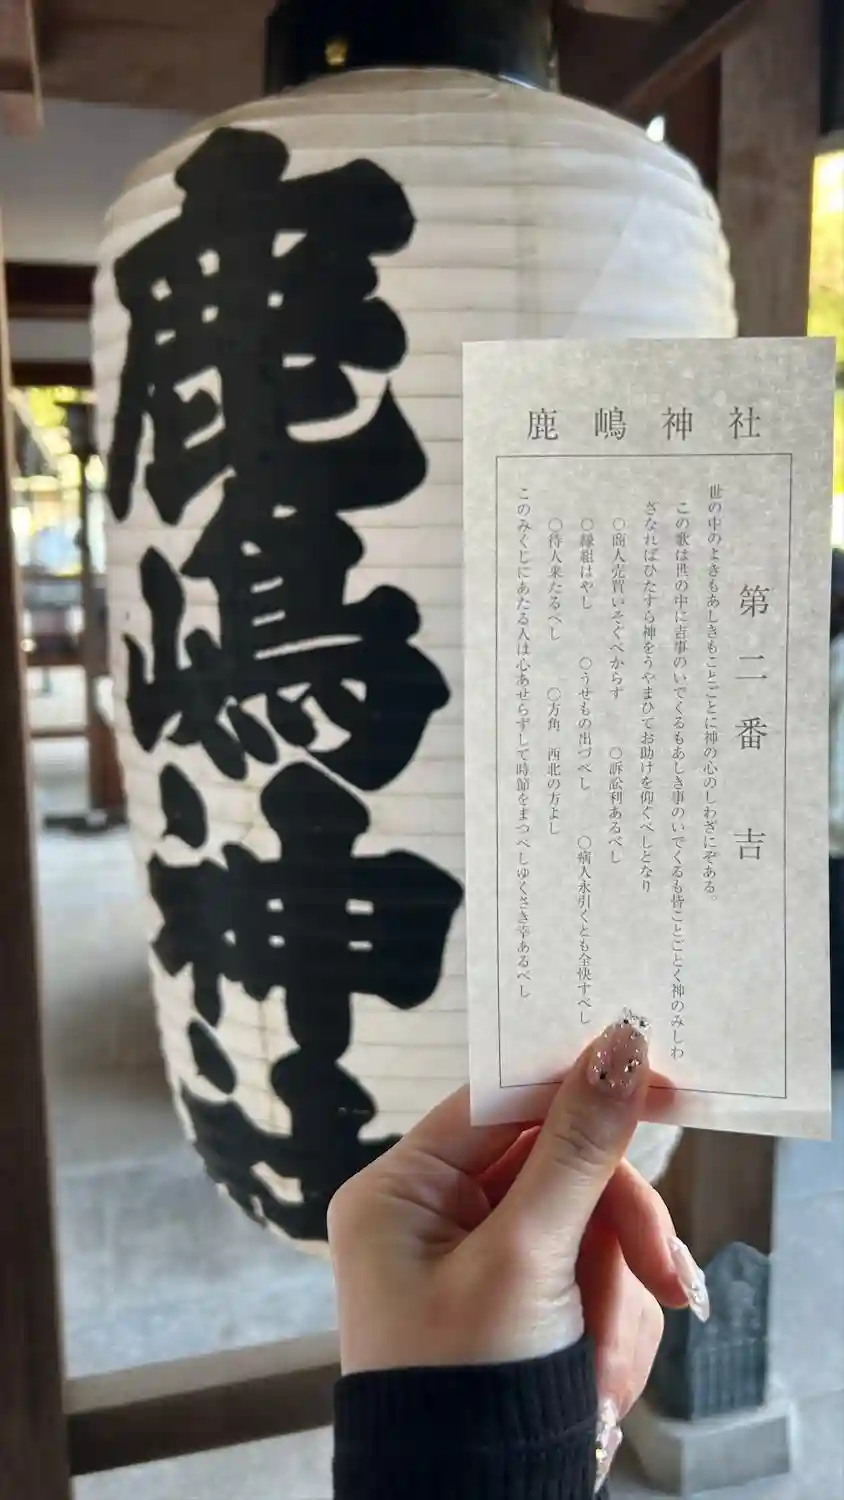 鹿嶋神社
鹿嶋神社
第二番 吉
世の中のよきもあしきもことごとに神の心のしわざにぞある。
この歌は世の中に吉事のいでくるもあしき事のいでくるも皆ことごとく神のみしわ
ざなればひたすら神をうやまひてお助けを仰ぐべしとなり
○商人売買いそぐべからず ○訴訟利あるべし
○縁組はやし ○うせもの出づべし ○病人永引くとも全快すべし
○待人来たるべし ○方角 西北の方よし
このみくじにあたる人は心あせらずして時節をまつべしゆくさき幸あるべし